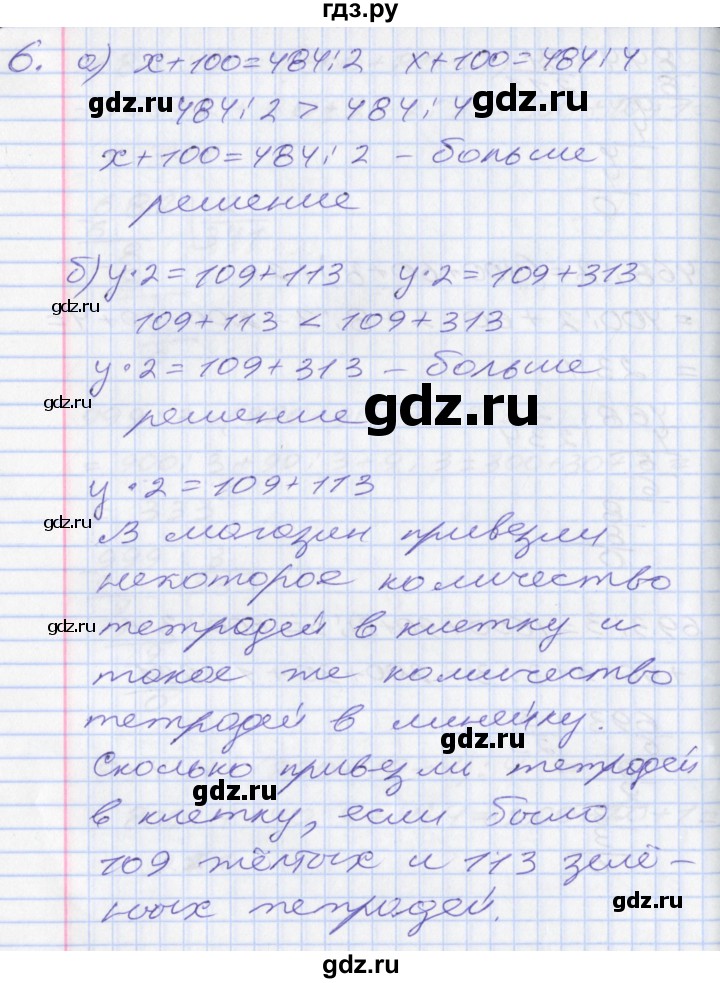 гдз.ру
6. а) x+100=484:2 x+100=484:4
gdz.ru 484:2 > 484:4 gdz.ru
x+100=484:2 – больше
решение
б) y·2=109+113 y·2=109+313
gdz.ru 109+113 < 109+313
y·2=109+313 – больше
gdz.ru решение gdz.ru
y·2=109+113
gdz.ru В магазин привезли
некоторое количество
gdz.ru тетродей в клетку и
такое же количество
тетродей в линейку.
gdz.ru
Сколько привезли тетродей
gdz.ru
в клетку, если было
109 жёлтых и 113 зелё-
ных тетродей. gdz.ru
gdz.ru